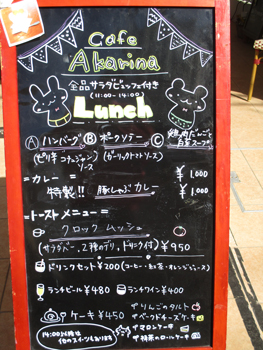 Cafe
Akarina
全品サラダビュッフェ付き
(11:00-14:00)
Lunch
Ⓐ ハンバーグ Ⓑ ポークソテー Ⓒ 焼肉だんごと
白菜スープ
(ピリ辛コチュジャンソース) (ガーリックトマトソース)
¥1,000
=カレー=
特製!! 豚しゃぶカレー ¥1,000
=トーストメニュー=
クロックムッシュ
(サラダバー、2種のデリ、ドリンク付) ¥950
ドリンクセット¥200 (コーヒー・紅茶・オレンジジュース)
ランチビール¥480 ランチワイン¥400
ケーキ¥450
りんごのタルト
ベークドチーズケーキ
マロンケーキ
抹茶のロールケーキ
14:00以降は
他のスイーツもあります